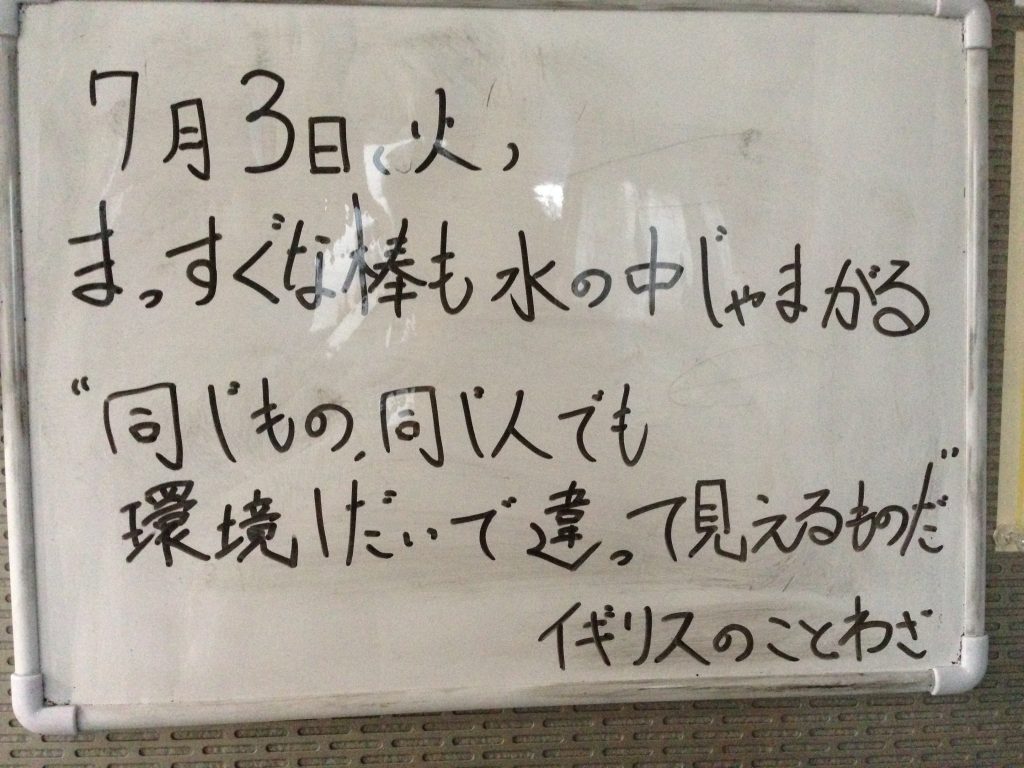 7月3日(火)
まっすぐな棒も水の中じゃまがる
“同じもの、同じ人でも
環境しだいで違って見えるものだ”
イギリスのことわざ